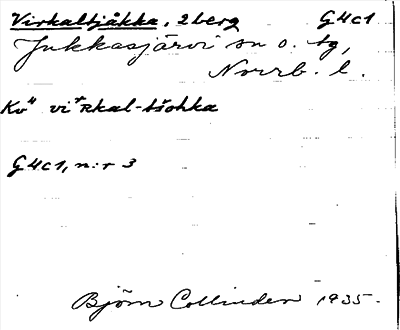 Virkaltjåkka, 2 berg G4c1
Jukkasjärvi sn o. tg,
Norrb. l.
Kv" viˣRkal-tšohka
G4c1, n:r 3
Björn Collinder 1935.